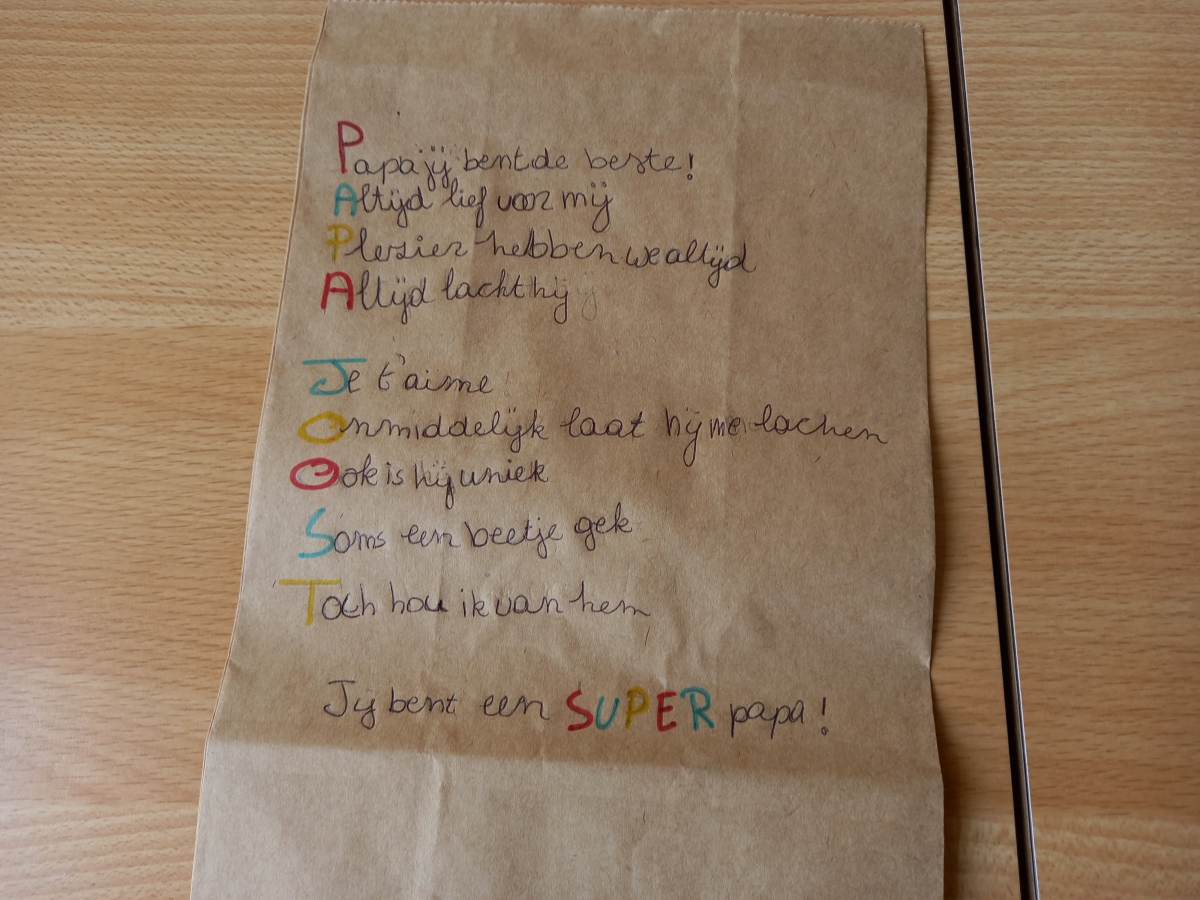 Papa jij bent de beste!
Altijd lief voor mij
Plezier hebben we altijd
Altijd lacht hij
Je t'aime
Onmiddelijk laat hij me lachen
Ook is hij uniek
Soms een beetje gek
Toch hou ik van hem
Jij bent een SUPER papa!